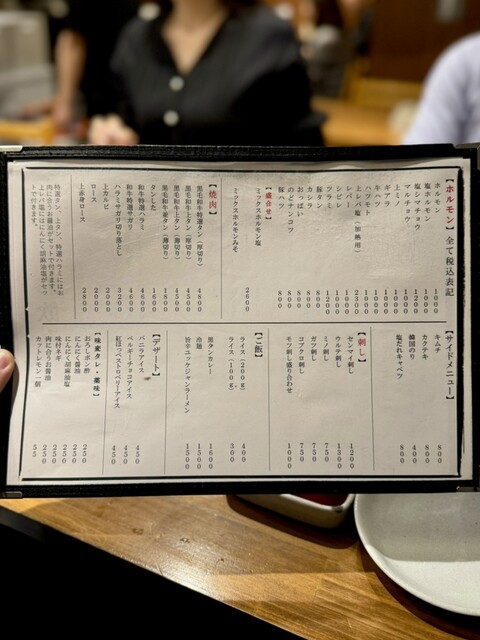 【ホルモン】全て税込表記
ホルモン 1000
塩ホルモン 1000
塩シマチョウ 1200
マルチョウ 1000
上ミノ
ギアラ 1000
牛ハツ 1000
ハツモト
上レバ塩（加熱用） 2300
レバー
シビレ 1000
ツラミ 1200
豚タン 800
カシラ 800
おっぱい 800
のどナンコツ 800
豚ハツ 800
【盛合せ】
ミックスホルモン塩
ミックスホルモンみそ 2600
【焼肉】
黒毛和牛特選タン（厚切り） 4800
黒毛和牛上タン（厚切り） 4500
黒毛和牛並タン（薄切り） 1800
タンした
和牛特選ハラミ 4600
和牛特選サガリ 4600
ハラミサガリ切り落とし 3200
上カルビ 2000
ロース 2000
上赤身ロース 2800
特選タン、上タン、特選ハラミにはお
肉に合うお醤油がセットで付きます。
上レバ塩にはにんにく胡麻油塩がセッ
トで付きます。
【サイドメニュー】
キムチ 800
カクテキ 800
韓国のり 400
塩だれキャベツ 800
【刺し】
センマイ刺し 1200
ウルテ刺し 1300
ミノ刺し 750
ガツ刺し 750
コブクロ刺し 750
モツ刺し盛り合わせ 1000
【ご飯】
ライス（200g） 400
ライス（100g） 300
黒タンカレー 1600
冷麺 1500
旨辛ユッケジャンラーメン 1500
【デザート】
バニラアイス 450
ベルギーチョコアイス 450
紅ほっぺストロベリーアイス 450
【味変タレ・薬味】
おろしポン酢 250
にんにく醤油 250
にんにく胡麻油塩 250
味付ネギ 250
肉に合うお醤油 250
カットレモン一個 55